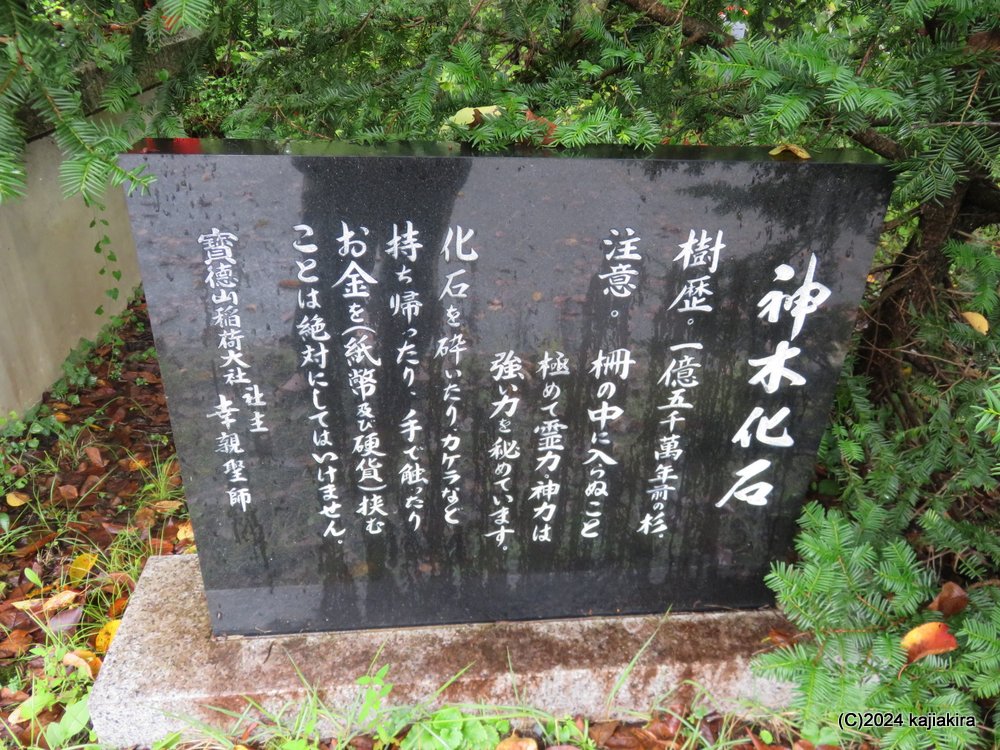 神木化石
樹歴。一億五千萬年前の杉.
注意。柵の中に入らぬこと
極めて霊力・神力は
強い力を秘めています。
化石を砕いたり、カケラなど
持ち帰ったり、手で触ったり
お金を(紙幣及び硬貨)挟む
ことは絶対にしてはいけません.
寶德山稲荷大社 社主 幸親聖師
(C)2024 kajiakira